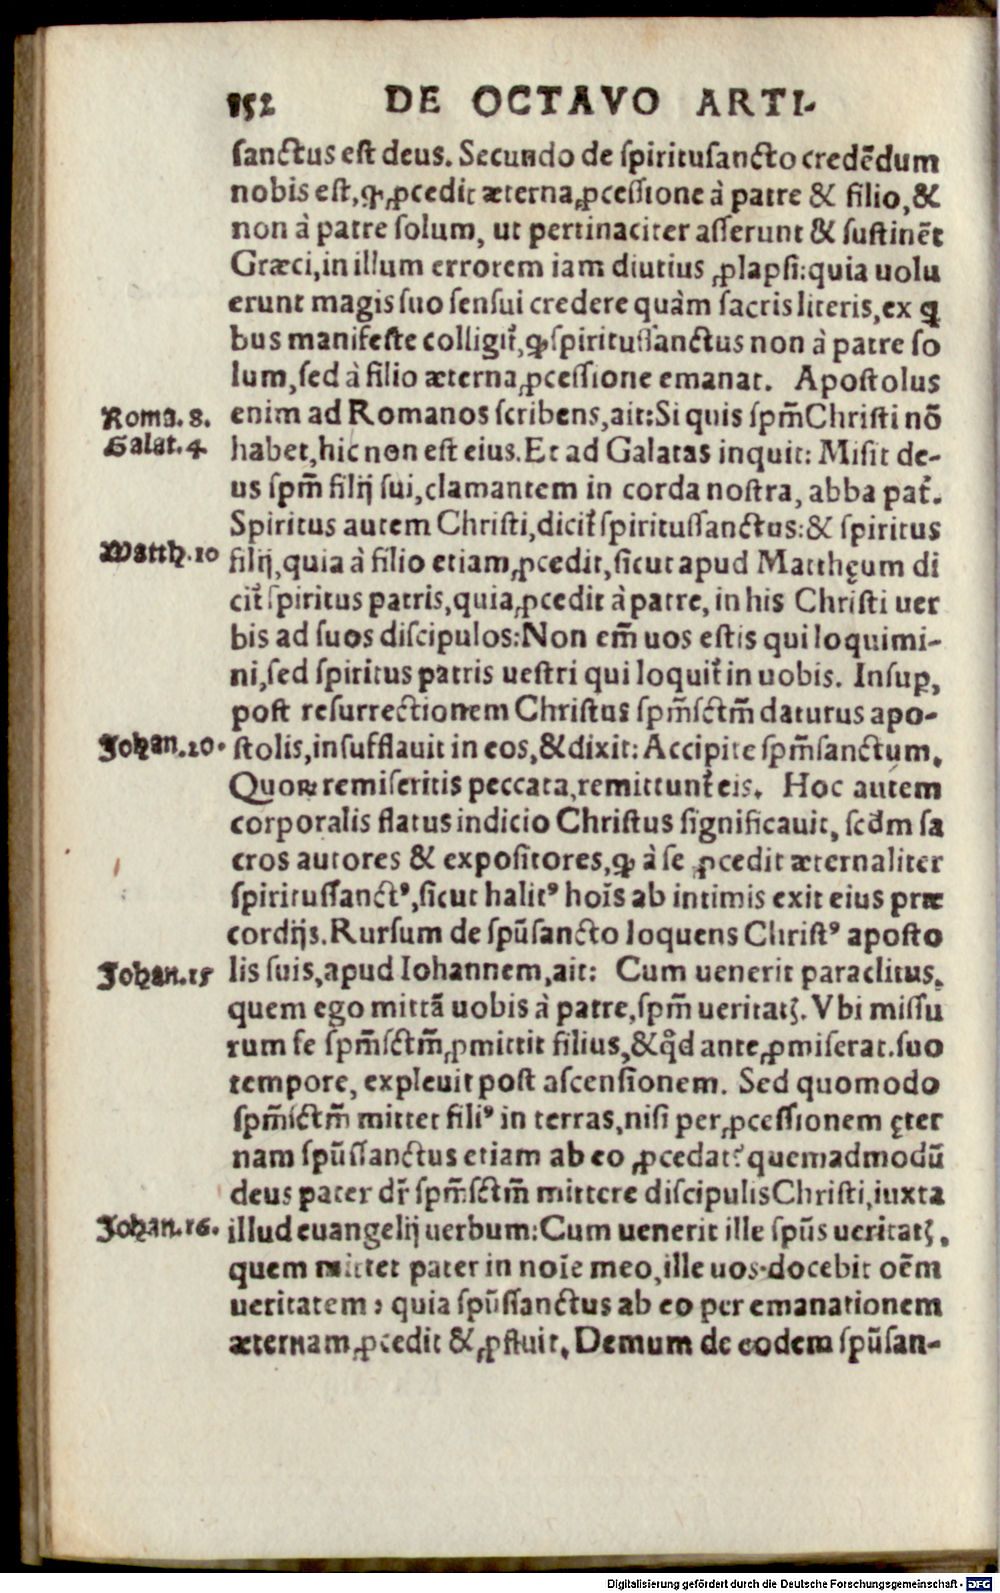 152 DE OCTAVO ARTI-
sanctus est deus. Secundo de spiritusancto credēdum
nobis est, ꝙ ꝓcedit æterna ꝓcessione à patre & filio, &
non à patre solum, ut pertinaciter asserunt & sustinēt
Græci, in illum errorem iam diutius ꝓlapsi: quia uolu
erunt magis suo sensui credere quàm sacris literis, ex ꝗ
bus manifeste colligit᷑, ꝙ spiritussanctus non à patre so
lum, sed à filio æterna ꝓcessione emanat. Apostolus
Roma. 8. enim ad Romanos scribens, ait: Si quis spm̃ Christi nō
Galat. 4. habet, hic non est eius. Et ad Galatas inquit: Misit de-
us spm̃ filij sui, clamantem in corda nostra, abba pat᷑.
Spiritus autem Christi, dicit᷑ spiritussanctus: & spiritus
Matth. 10 filij, quia à filio etiam ꝓcedit, sicut apud Matthęum di
cit᷑ spiritus patris, quia ꝓcedit à patre, in his Christi uer
bis ad suos discipulos: Non em̃ uos estis qui loquimi-
ni, sed spiritus patris uestri qui loquit᷑ in uobis. Insuꝑ,
post resurrectionem Christus spm̃sctm̃ daturus apo-
Johan. 20. stolis, insufflauit in eos, & dixit: Accipite spm̃sanctum.
Quoꝝ remiseritis peccata, remittunt᷑ eis. Hoc autem
corporalis flatus indicio Christus significauit, scđm sa
cros autores & expositores, ꝙ à se ꝓcedit æternaliter
spiritussanctꝰ, sicut halitꝰ hoĩs ab intimis exit eius præ
cordijs. Rursum de spũsancto loquens Christꝰ aposto
Johan. 15 lis suis, apud Iohannem, ait: Cum uenerit paraclitus,
quem ego mittã uobis à patre, spm̃ ueritatꝭ. Vbi missu
rum se spm̃sctm̃ ꝓmittit filius, & qd̃ ante ꝓmiserat. suo
tempore, expleuit post ascensionem. Sed quomodo
spm̃sctm̃ mittet filiꝰ in terras, nisi per ꝓcessionem ęter
nam spũssanctus etiam ab eo ꝓcedat? quemadmodũ
deus pater dr̃ spm̃sctm̃ mittere discipulis Christi, iuxta
Johan. 16. illud euangelij uerbum: Cum uenerit ille spũs ueritatꝭ,
quem mittet pater in noĩe meo, ille uos docebit oẽm
ueritatem: quia spũssanctus ab eo per emanationem
æternam ꝓcedit & ꝓfluit. Demum de eodem spũsan-
Digitalisierung gefördert durch die Deutsche Forschungsgemeinschaft - DFG